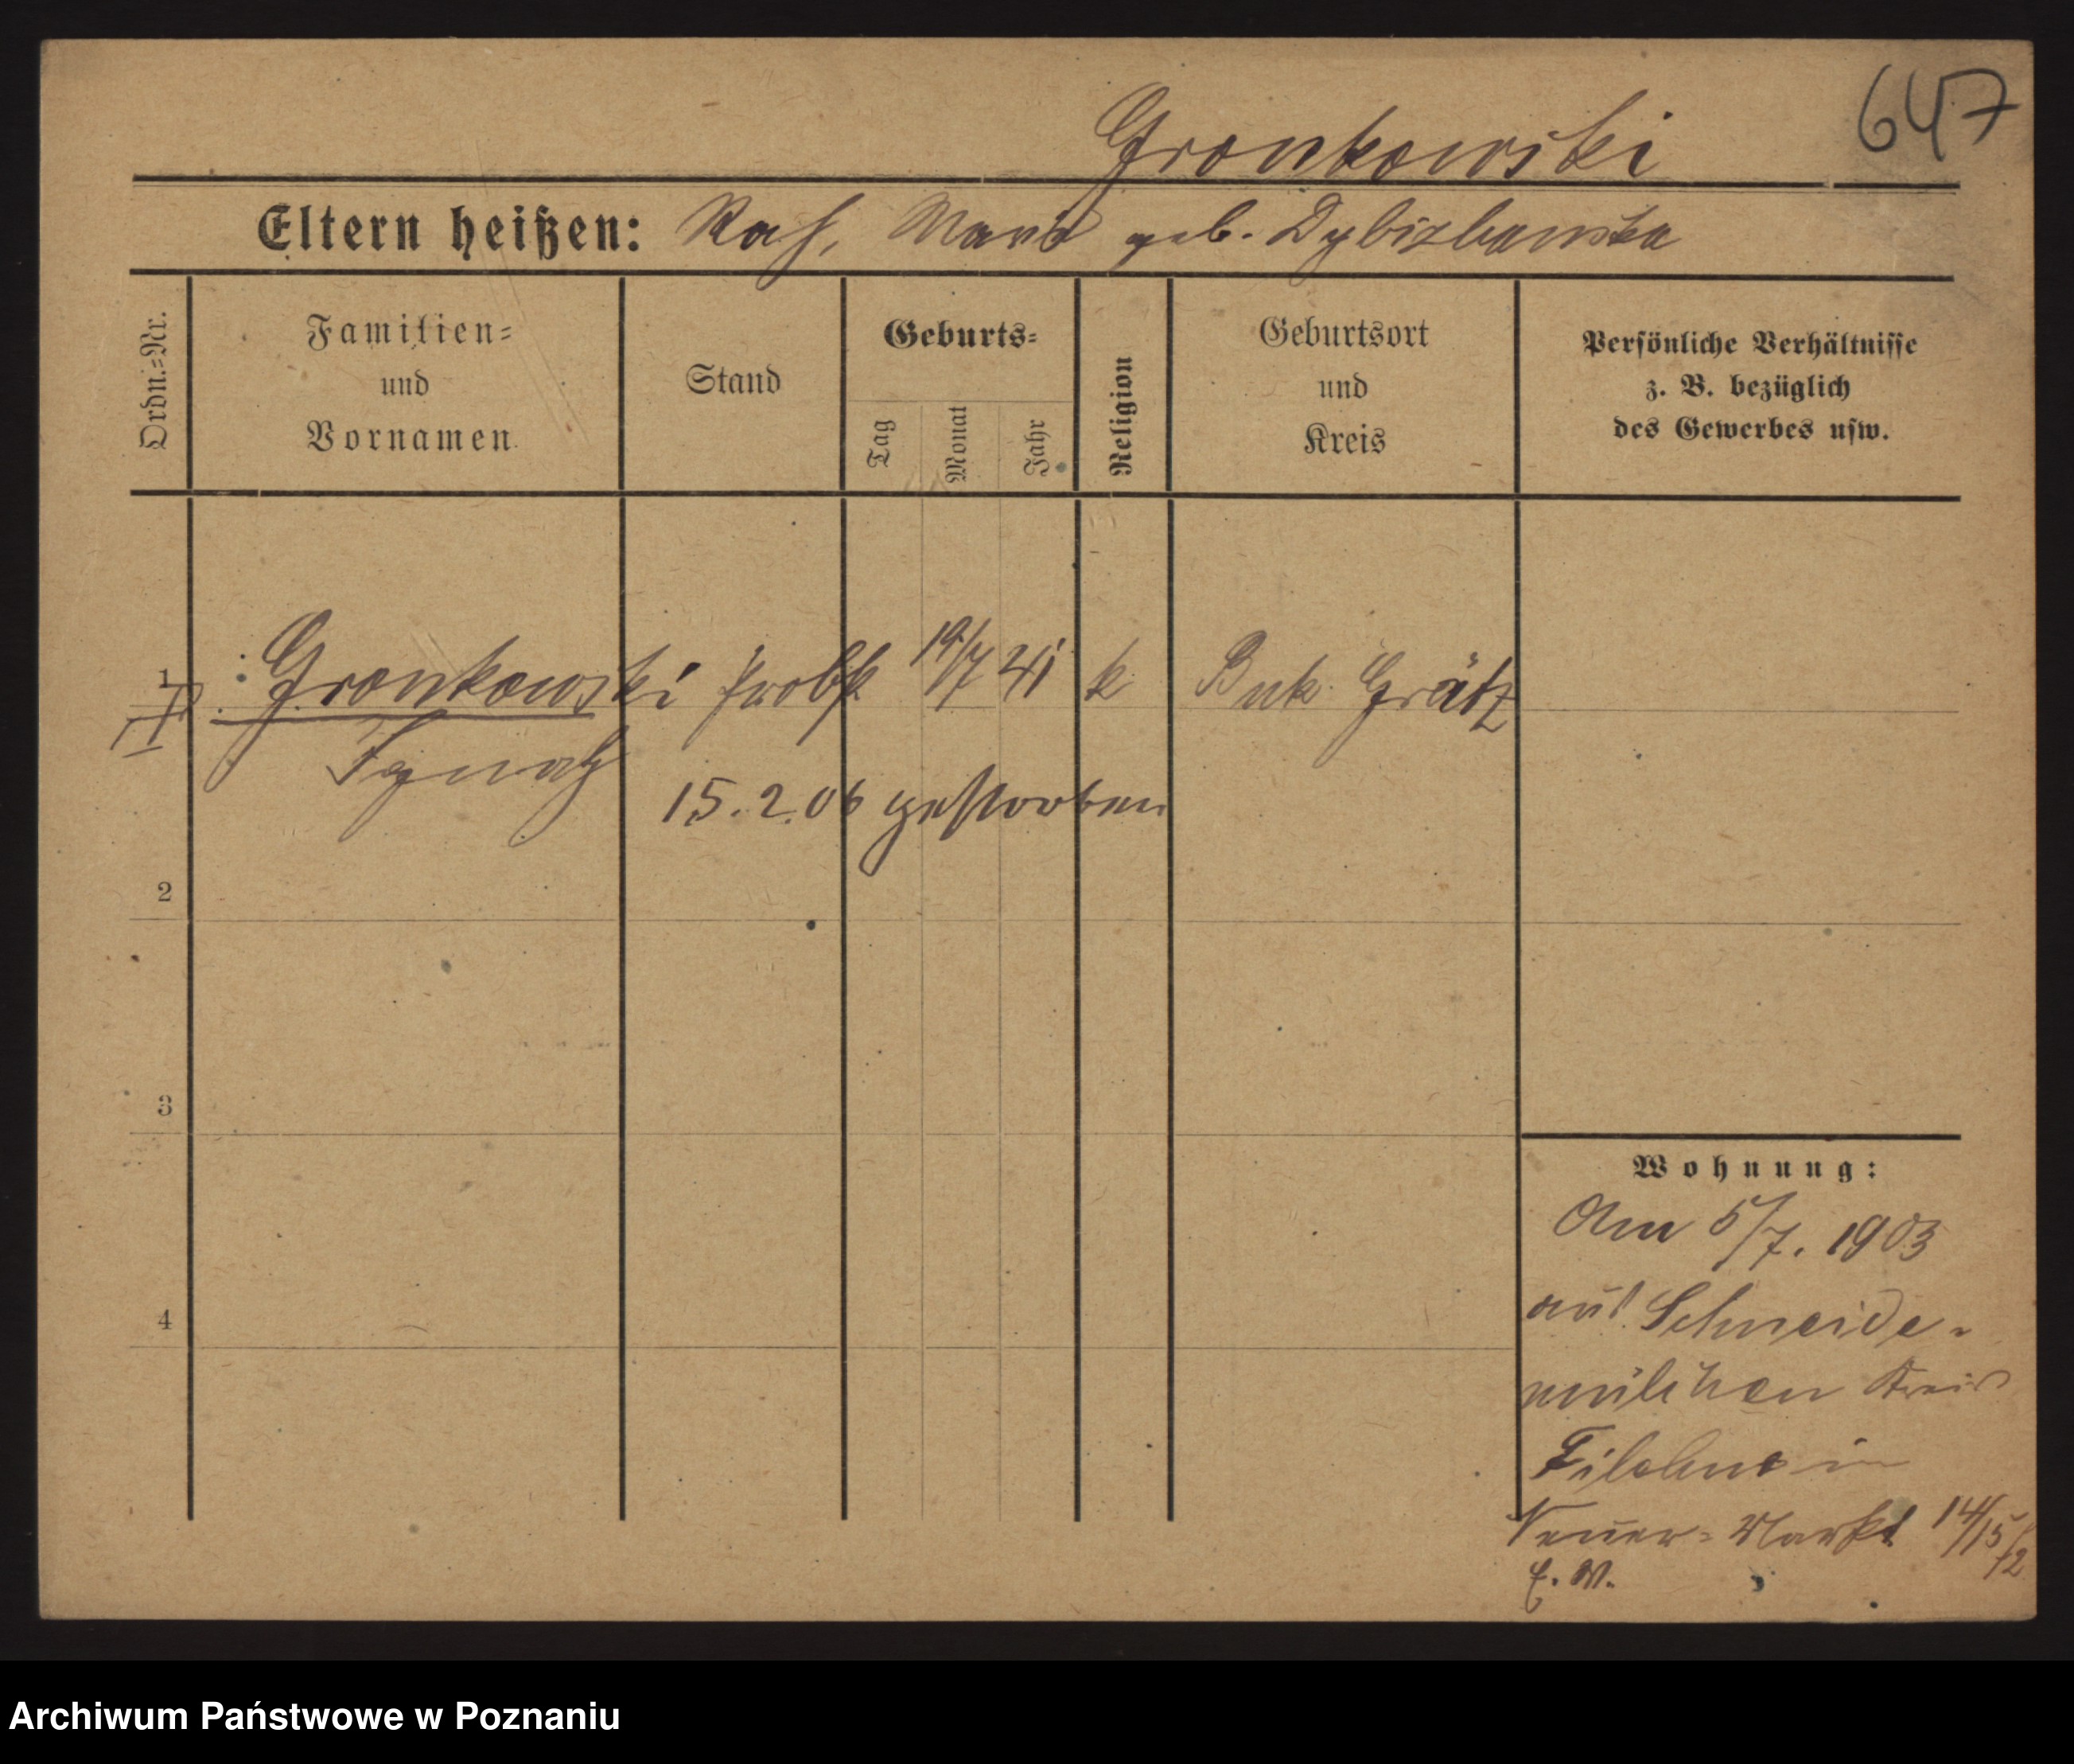 647
Gronkowski
Eltern heißen: Raf, Maria geb. Dybizbanska
Ordn.-Nr.
Familien- und Vornamen.
Stand
Geburts-
Tag
Monat
Jahr
Religion
Geburtsort und Kreis
Persönliche Verhältnisse
z. B. bezüglich
des Gewerbes usw.
1 Gronkowski Probst 19/7 41 k Buk Grätz
Ignatz
15.2.06 gestorben
2
3
4
Wohnung:
Am 5/7. 1903
aus Schneide-
mülchen Kreis
Filehne in
Neuer-Markt 14/15/2
E. W.
Archiwum Państwowe w Poznaniu